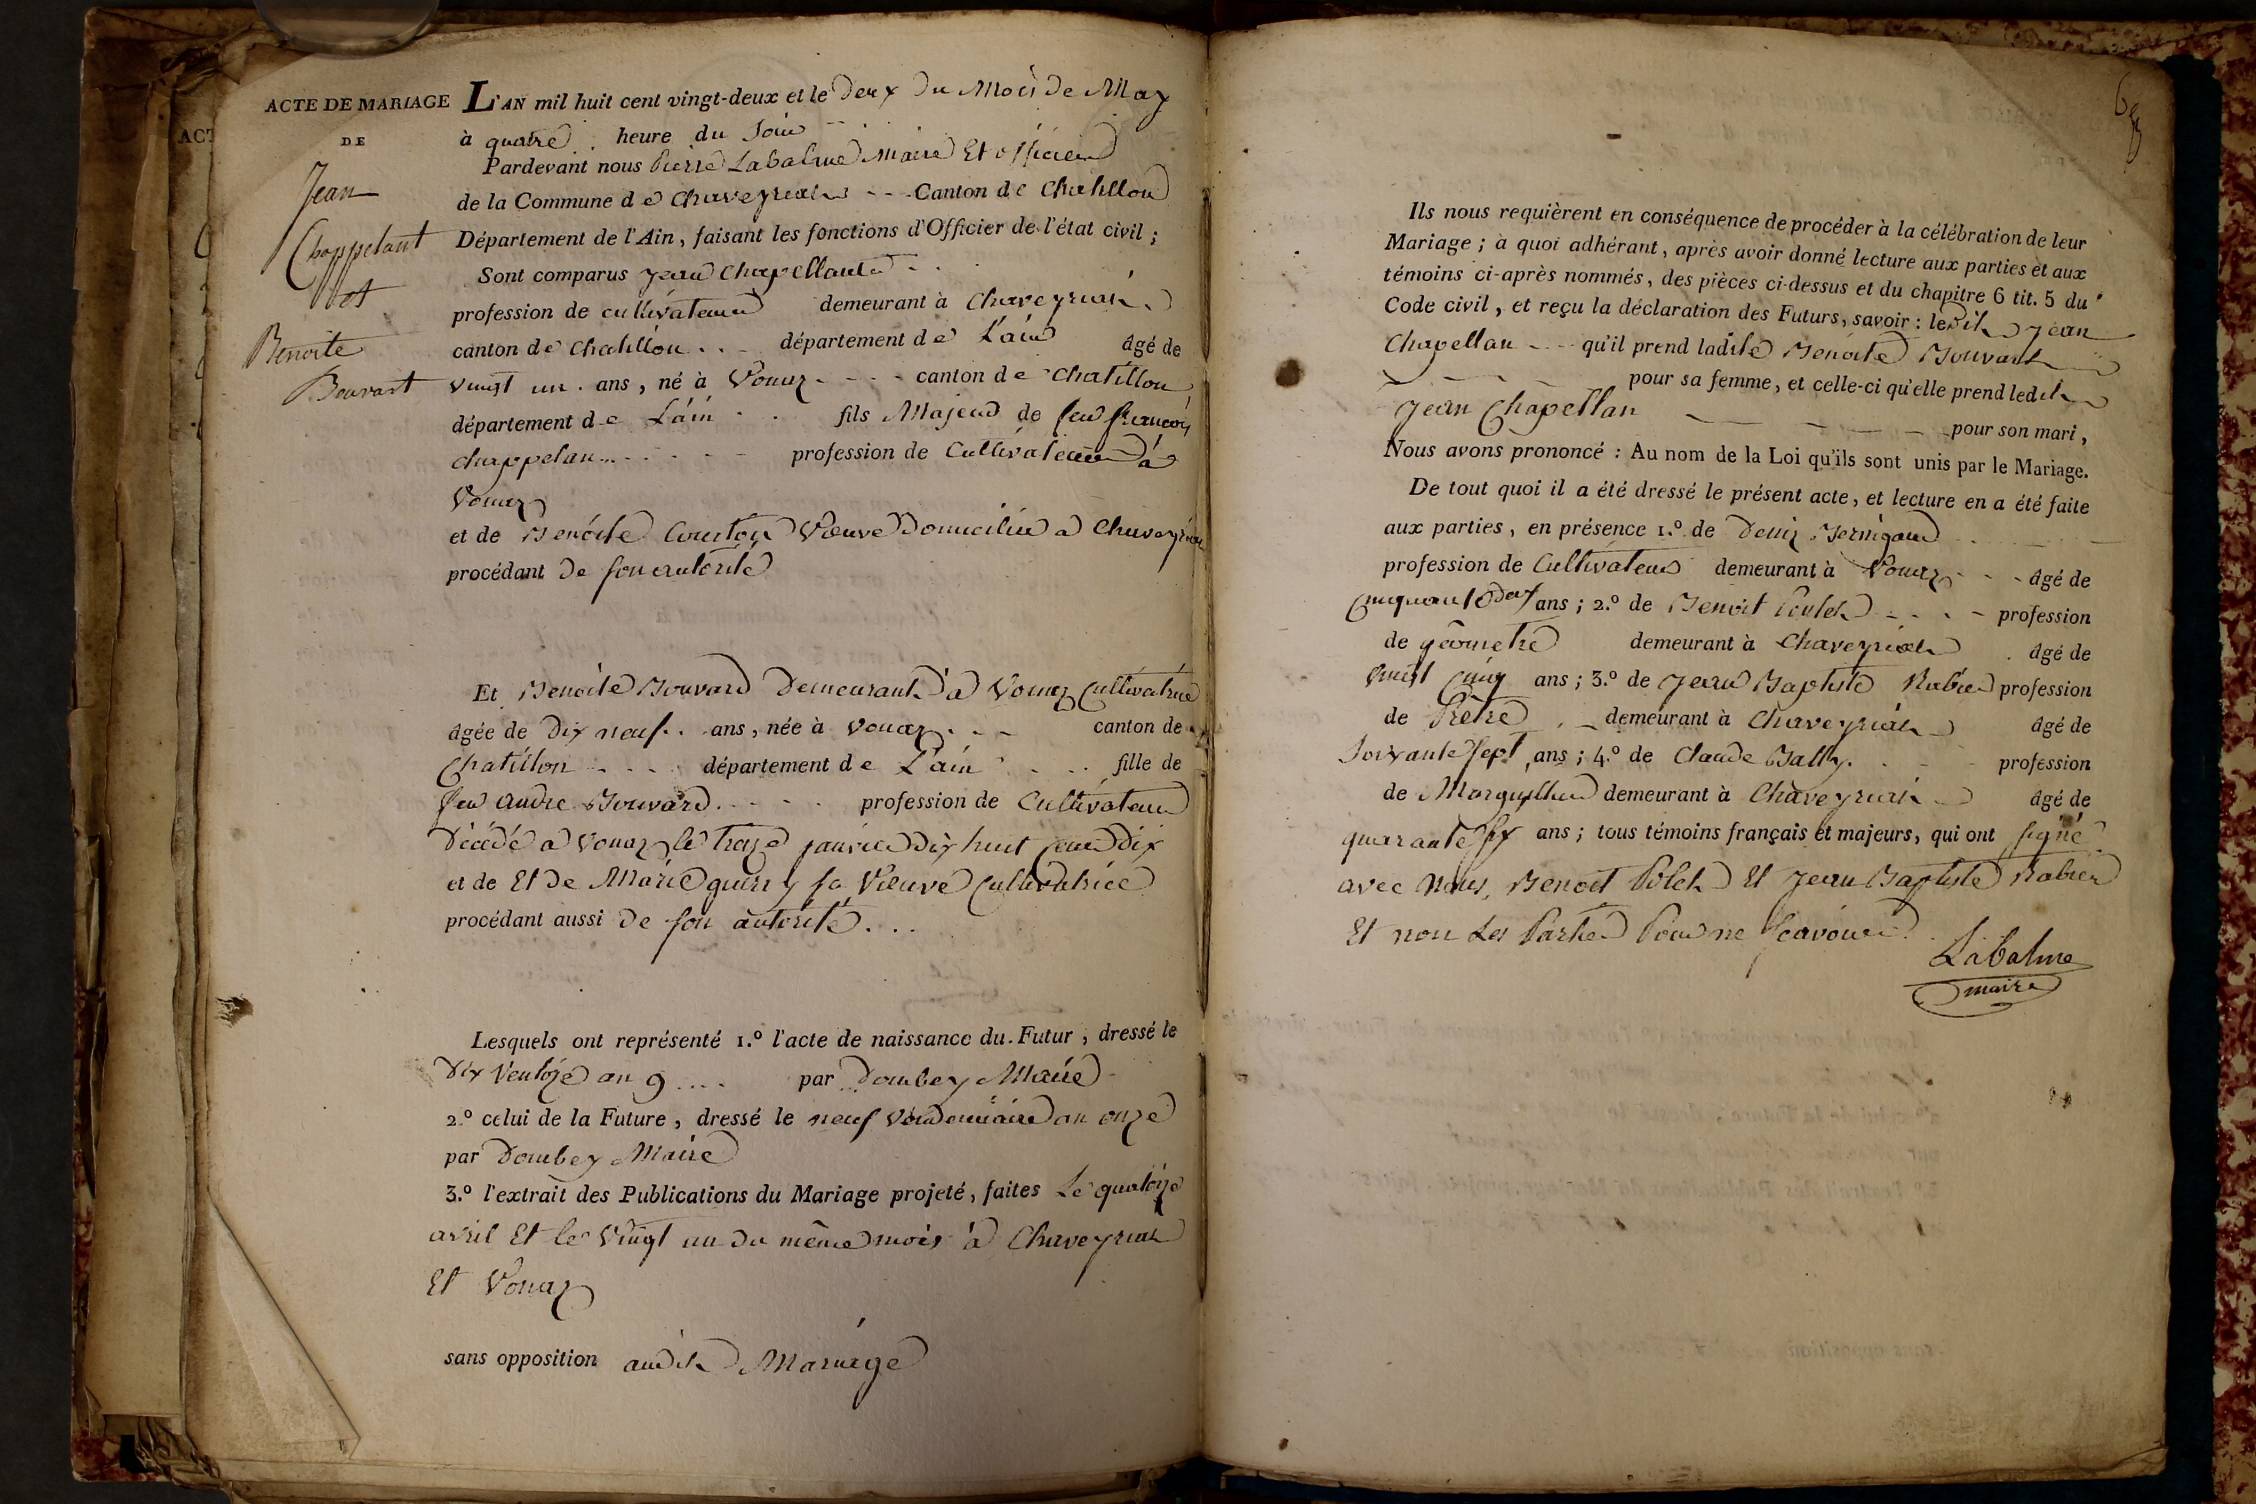 ACTE DE MARIAGE
DE
Jean
Chappelant
et
Benoite
Bouvart
ACT
L'AN mil huit cent vingt-deux et le deux du Mois de May
à quatre heure du Soir
Pardevant nous Pierre Labalme Maire Et officier
de la Commune de Chaveyriat --- Canton de Chatillon
Département de l'Ain, faisant les fonctions d'Officier de l'état civil ;
Sont comparus Jean Chapellant
profession de cultivateur demeurant à Chaveyriat
canton de Chatillon .. - département de L'ain âgé de
vingt un . ans, né à Vonaz - - - canton de Chatillon
département de L'ain fils Majeur de feu francois
chappelan profession de Cultivateur à
Vonaz
et de Benoite Veuve Domiciliée a Chaveyriat
procédant de son autorité
Et Benoite Bouvard Demeurant a Vonaz Cultivatrice
âgée de dix neuf .. ans, née à Vonaz . . - canton de
Chatillon - . . . département de L'ain . . . fille de
feu andre Bouvard . - - . profession de Cultivateur
décédé a Vonaz le treize janvier dix huit cent dix
et de Et De Marie guerry sa Veuve Cultivatrice
procédant aussi de son autorité . . .
Lesquels ont représenté 1.º l'acte de naissance du Futur, dressé le
dix Ventoze an 9 .... par Dombey Maire
2.º celui de la Future, dressé le neuf Vendemiaire an onze
par Dombey Maire
3.º l'extrait des Publications du Mariage projeté, faites Le quatorze
avril Et le Vingt un du même mois à Chaveyriat
Et Vonaz
sans opposition audit Mariage
Ils nous requièrent en conséquence de procéder à la célébration de leur
Mariage ; à quoi adhérant, après avoir donné lecture aux parties et aux
témoins ci-après nommés, des pièces ci-dessus et du chapitre 6 tit. 5 du
Code civil, et reçu la déclaration des Futurs, savoir : ledit Jean
Chapellan - - - qu'il prend ladite Benoite Bouvart
pour sa femme, et celle-ci qu'elle prend ledit
Jean Chapellan - - - pour son mari,
Nous avons prononcé : Au nom de la Loi qu'ils sont unis par le Mariage.
De tout quoi il a été dressé le présent acte, et lecture en a été faite
aux parties, en présence 1.º de Deniz Bernigaud
profession de Cultivateur demeurant à Vonaz - - - âgé de
Cinquante deux ans ; 2.º de Benoit Polet - - - - profession
de géometre demeurant à Chaveyriat . âgé de
Vingt Cinq ans ; 3.º de Jean Baptiste Rabier profession
de Prêtre . - demeurant à Chaveyriat âgé de
Soixante Sept ans ; 4.º de Claude Bally . - - profession
de Marguillier demeurant à Chaveyriat âgé de
quarante six ans ; tous témoins français et majeurs, qui ont signé
avec Nous, Benoit Polet Et Jean Baptiste Rabier
Et non Les Parties Pour ne Scavoir
Labalme
maire